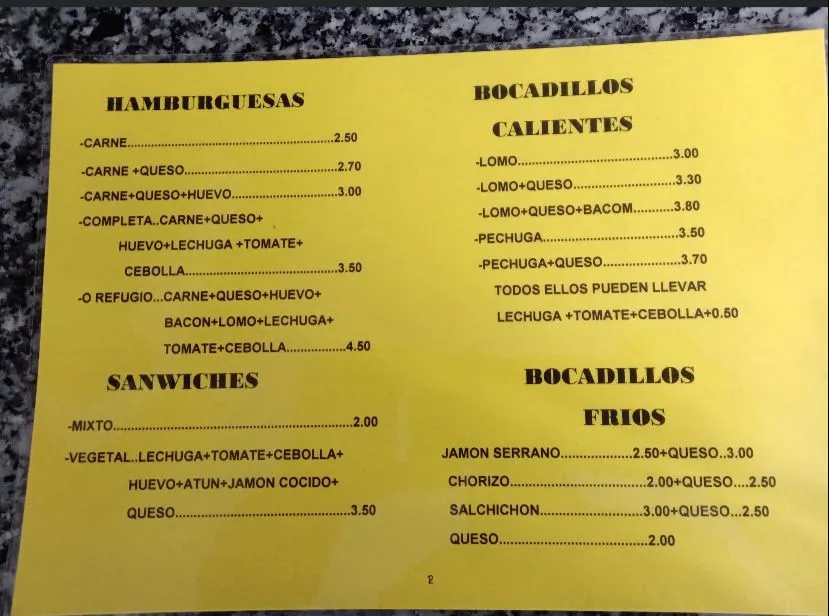 HAMBURGUESAS
-CARNE............................................2.50
-CARNE +QUESO.................................2.70
-CARNE+QUESO+HUEVO.......................3.00
-COMPLETA..CARNE+QUESO+
HUEVO+LECHUGA +TOMATE+
CEBOLLA.................................3.50
-O REFUGIO...CARNE+QUESO+HUEVO+
BACON+LOMO+LECHUGA+
TOMATE+CEBOLLA................4.50
SANWICHES
-MIXTO....................................................2.00
-VEGETAL..LECHUGA+TOMATE+CEBOLLA+
HUEVO+ATUN+JAMON COCIDO+
QUESO......................................3.50
BOCADILLOS
CALIENTES
-LOMO.....................................3.00
-LOMO+QUESO.........................3.30
-LOMO+QUESO+BACOM..........3.80
-PECHUGA................................3.50
-PECHUGA+QUESO...................3.70
TODOS ELLOS PUEDEN LLEVAR
LECHUGA +TOMATE+CEBOLLA+0.50
BOCADILLOS
FRIOS
JAMON SERRANO.................2.50+QUESO..3.00
CHORIZO................................2.00+QUESO....2.50
SALCHICHON.........................3.00+QUESO...2.50
QUESO....................................2.00
2